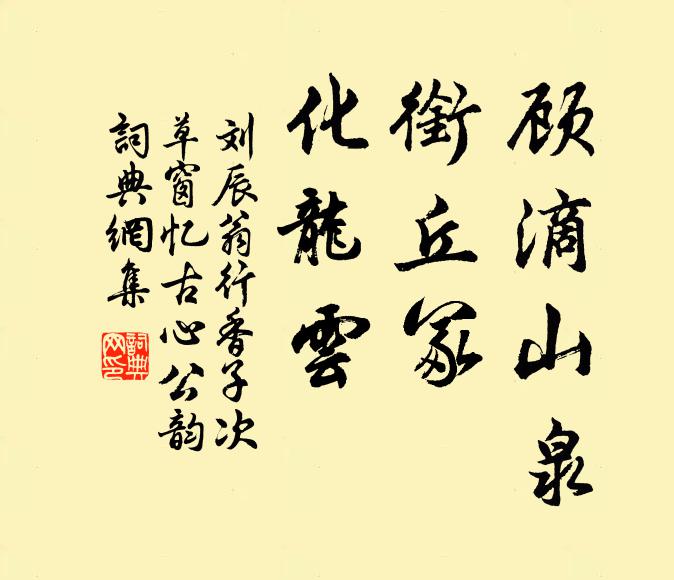 顾滴山泉
衔丘冢
化龍雲
刘辰翁行香子次
草窗忆古心公韵
詞典網集
詞典
网印